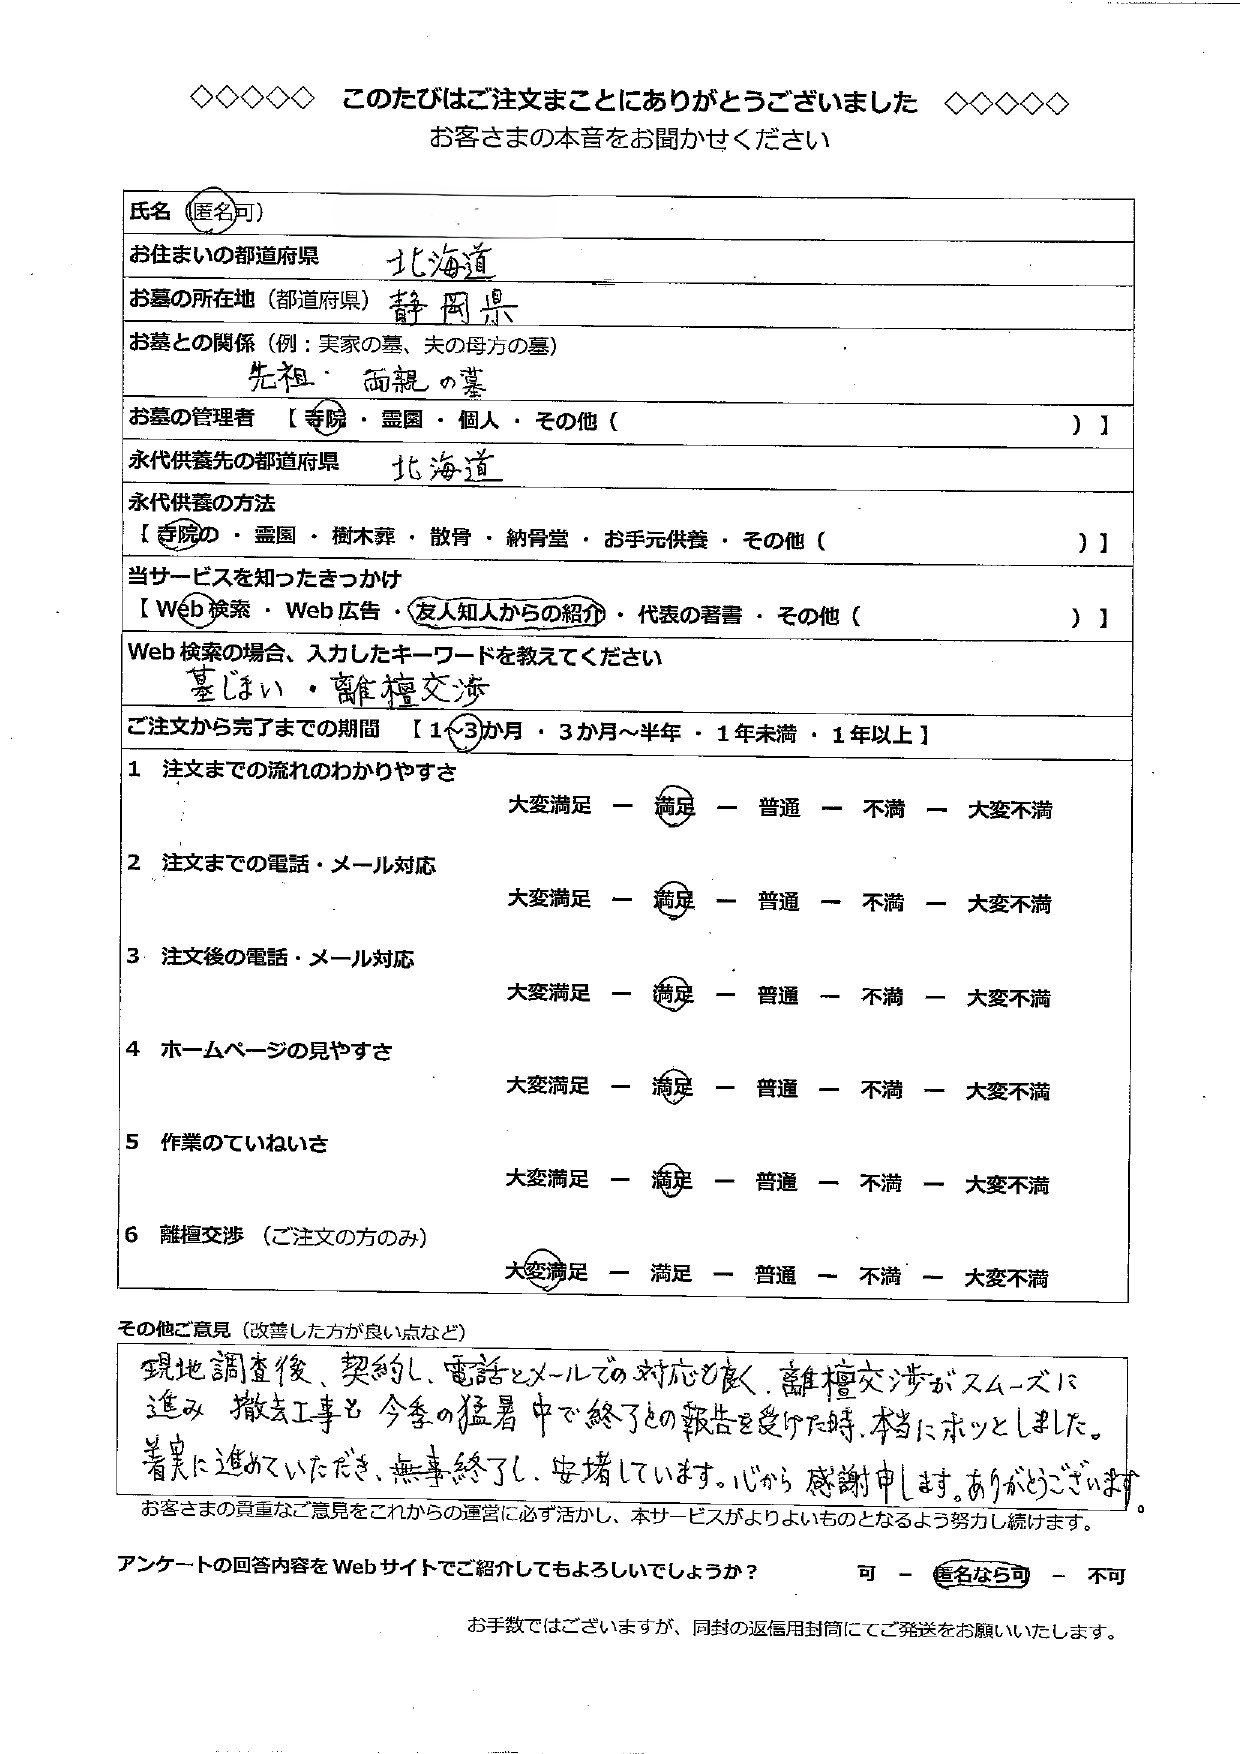 ◇◇◇◇◇ このたびはご注文まことにありがとうございました ◇◇◇◇◇
お客さまの本音をお聞かせください
氏名（匿名可）
お住まいの都道府県 北海道
お墓の所在地（都道府県） 静岡県
お墓との関係（例：実家の墓、夫の母方の墓）
先祖・両親の墓
お墓の管理者 【 寺院 ・ 霊園 ・ 個人 ・ その他（ ）】
永代供養先の都道府県 北海道
永代供養の方法
【 寺院の ・ 霊園 ・ 樹木葬 ・ 散骨 ・ 納骨堂 ・ お手元供養 ・ その他（ ）】
当サービスを知ったきっかけ
【 Web検索 ・ Web広告 ・ 友人知人からの紹介 ・ 代表の著書 ・ その他（ ）】
Web検索の場合、入力したキーワードを教えてください
墓じまい・離檀交渉
ご注文から完了までの期間 【 1～3か月 ・ 3か月～半年 ・ 1年未満 ・ 1年以上 】
1 注文までの流れのわかりやすさ
大変満足 － 満足 － 普通 － 不満 － 大変不満
2 注文までの電話・メール対応
大変満足 － 満足 － 普通 － 不満 － 大変不満
3 注文後の電話・メール対応
大変満足 － 満足 － 普通 － 不満 － 大変不満
4 ホームページの見やすさ
大変満足 － 満足 － 普通 － 不満 － 大変不満
5 作業のていねいさ
大変満足 － 満足 － 普通 － 不満 － 大変不満
6 離檀交渉 （ご注文の方のみ）
大変満足 － 満足 － 普通 － 不満 － 大変不満
その他ご意見（改善した方が良い点など）
現地調査後、契約し、電話とメールでの対応も良く、離檀交渉がスムーズに
進み 撤去工事も 今季の猛暑中で終了との報告を受けた時、本当にホッとしました。
着実に進めていただき、無事終了し、安堵しています。心から感謝申します。ありがとうございます。
お客さまの貴重なご意見をこれからの運営に必ず活かし、本サービスがよりよいものとなるよう努力し続けます。
アンケートの回答内容をWebサイトでご紹介してもよろしいでしょうか？ 可 － 匿名なら可 － 不可
お手数ではございますが、同封の返信用封筒にてご発送をお願いいたします。